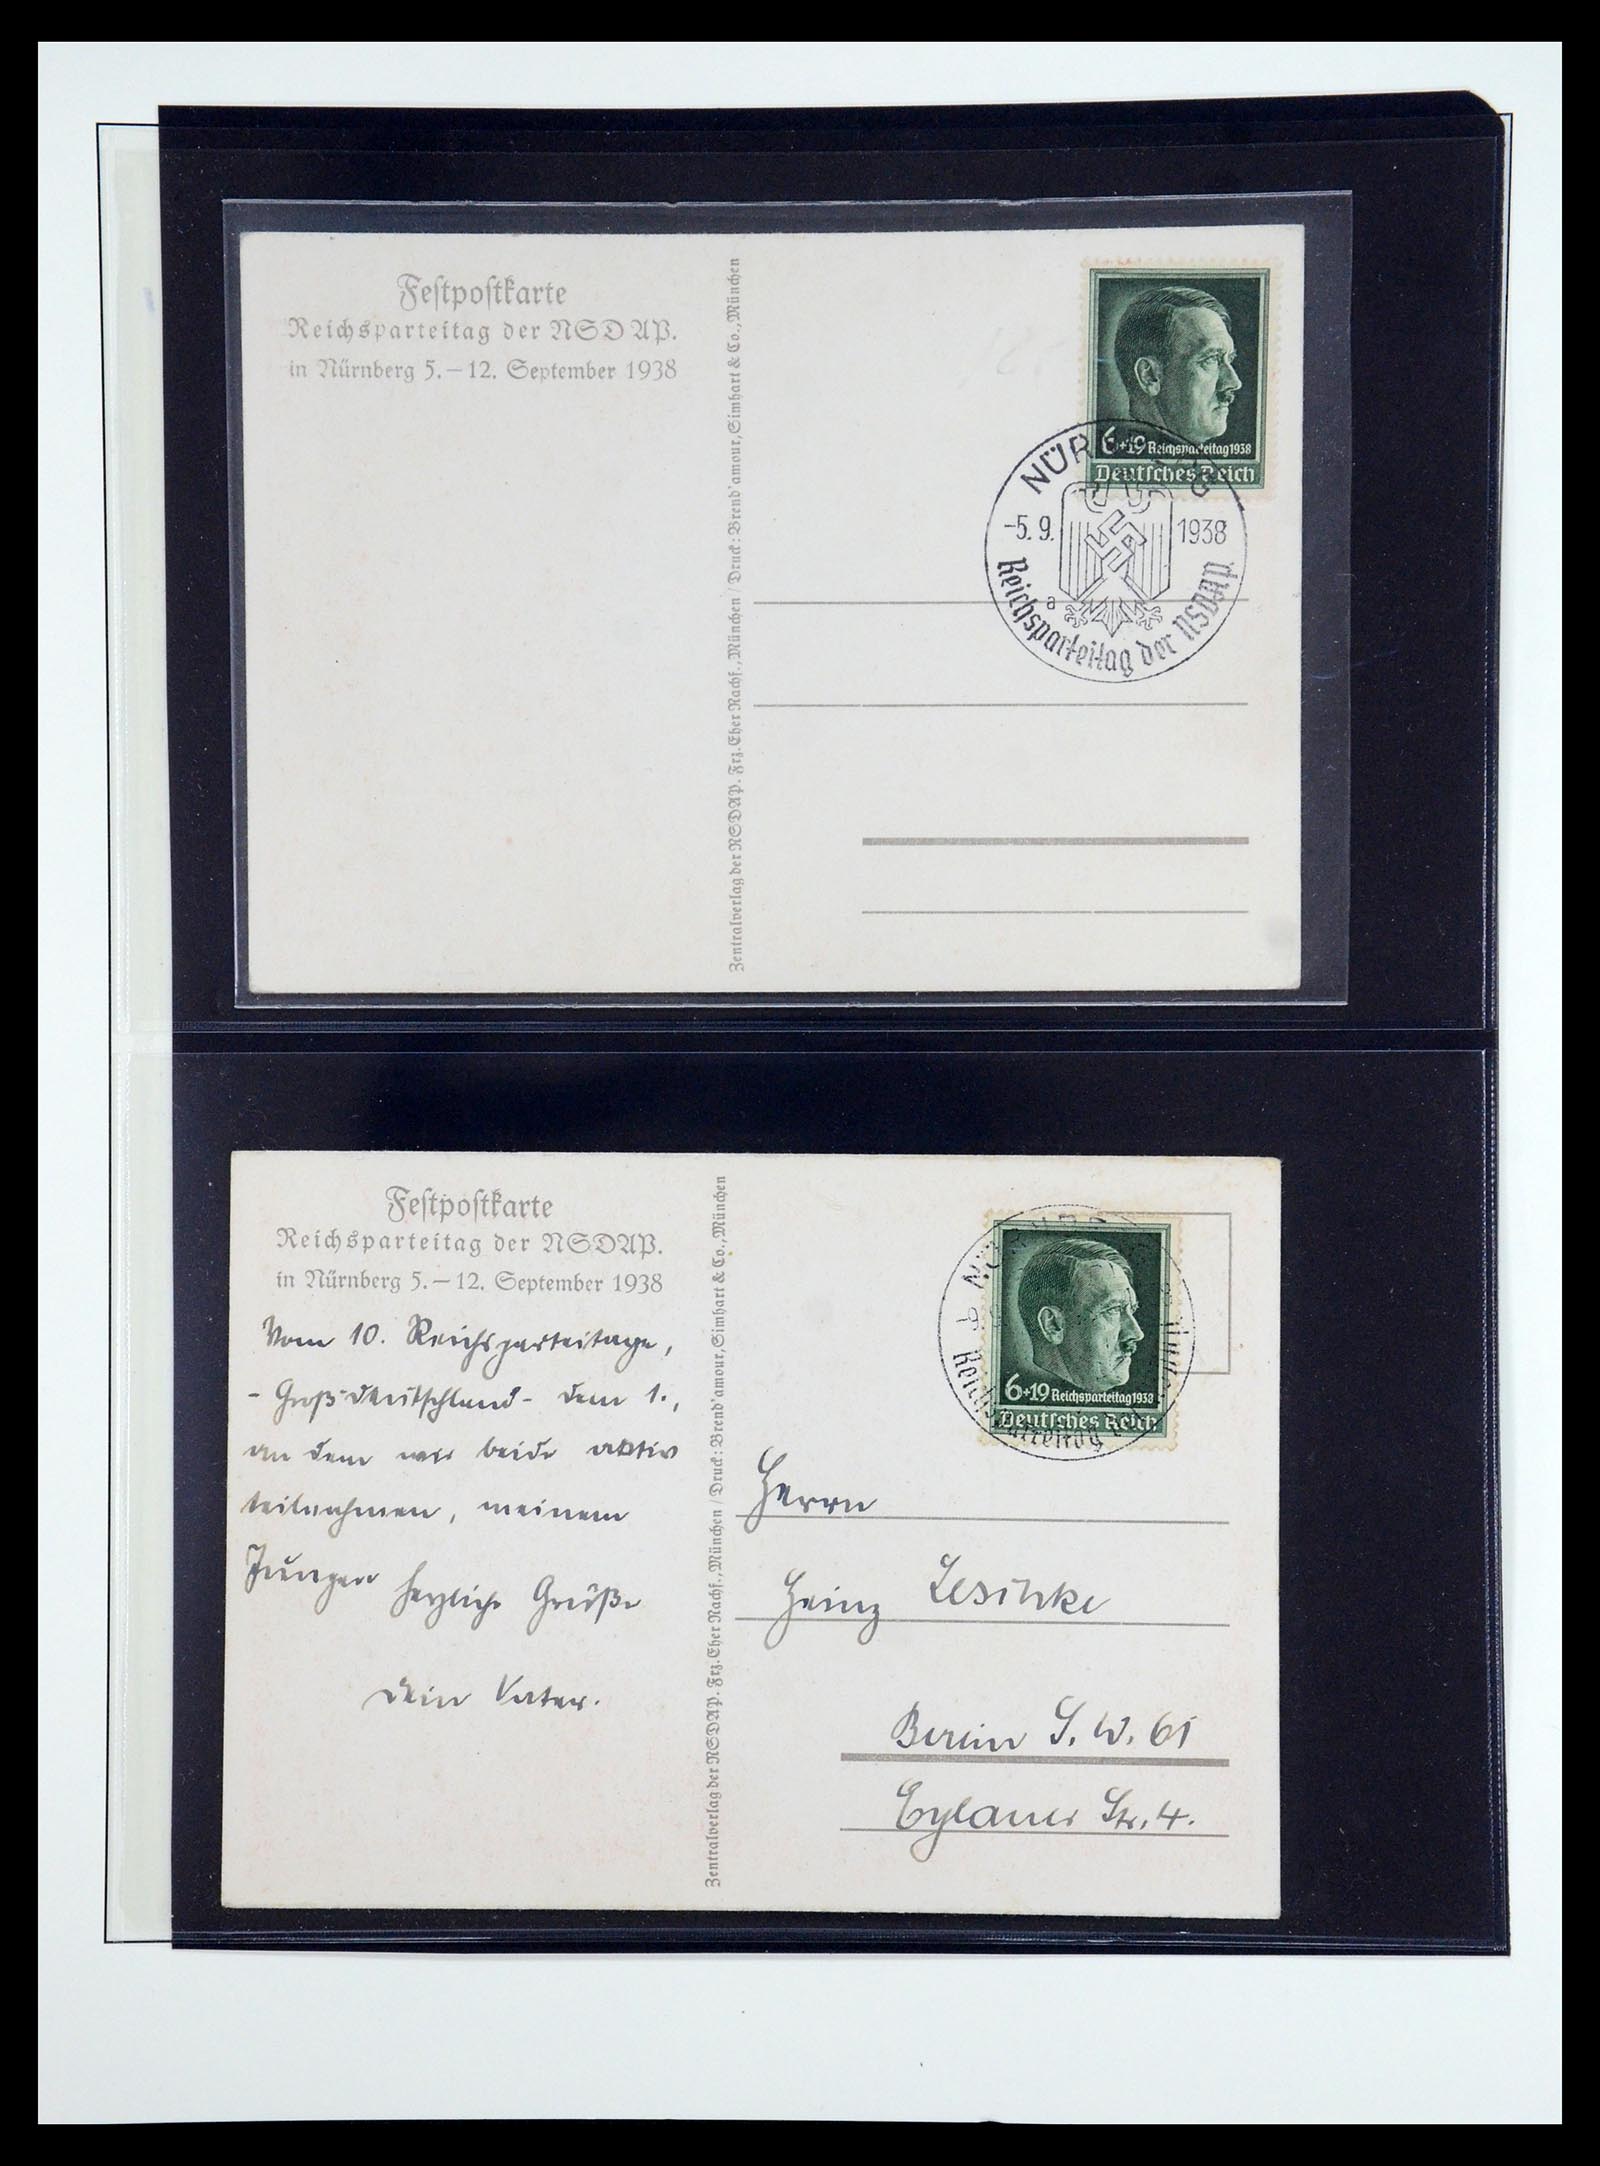 Festpostkarte
Reichsparteitag der NSDAP.
in Nürnberg 5.–12. September 1938
Zentralverlag der NSDAP. Frz. Eher Nachf., München / Druck: Brend'amour, Simhart & Co., München
6+19 Reichsparteitag 1938
Deutsches Reich
NÜRNBERG
-5.9. 1938
a
Reichsparteitag der NSDAP
Festpostkarte
Reichsparteitag der NSDAP.
in Nürnberg 5.–12. September 1938
Vom 10. Reichsparteitage,
- Großdeutschland - dem 1.,
an dem wir beide aktiv
teilnahmen, meinem
Jungen herzliche Grüße
Dein Vater.
Zentralverlag der NSDAP. Frz. Eher Nachf., München / Druck: Brend'amour, Simhart & Co., München
6+19 Reichsparteitag 1938
Deutsches Reich
Reichsparteitag
Herrn
Heinz Lesinke
Berlin S.W. 61
Eylauer Str. 4.